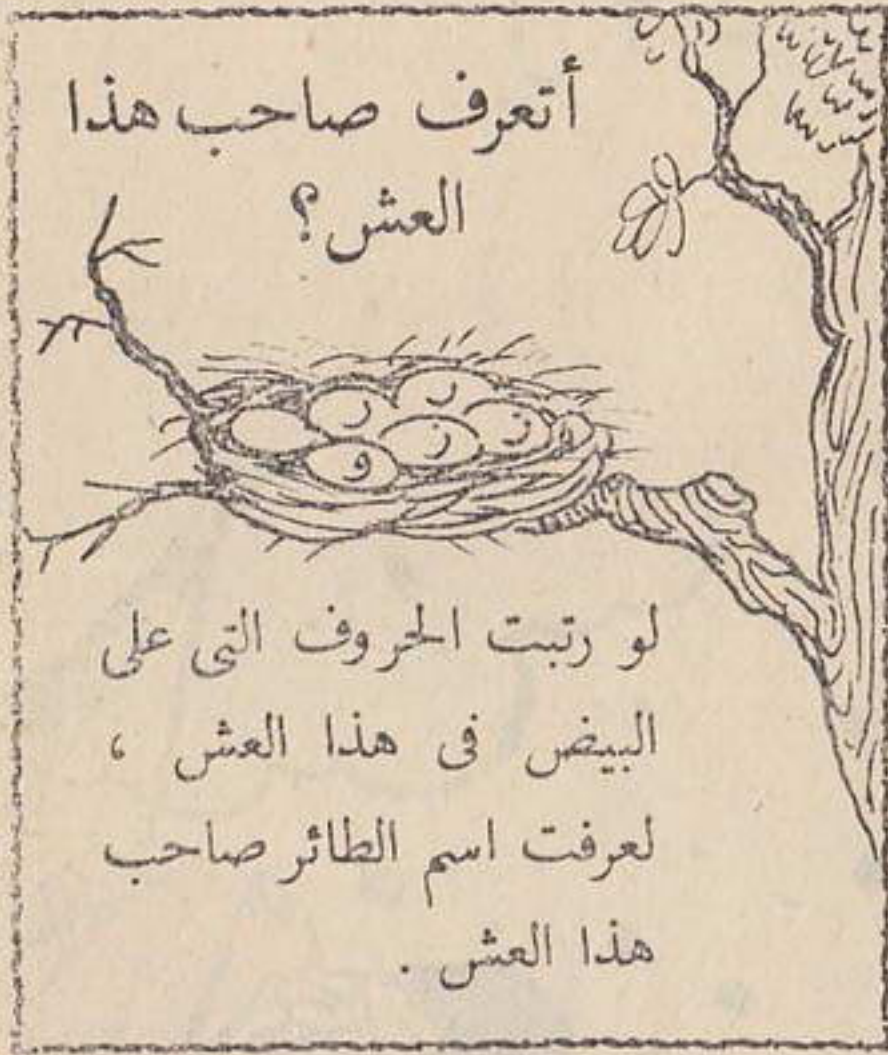 أتعرف صاحب هذا
العش؟
ر ر
ز ز
و
لو رتبت الحروف التى على
البيض فى هذا العش ،
لعرفت اسم الطائر صاحب
هذا العش .